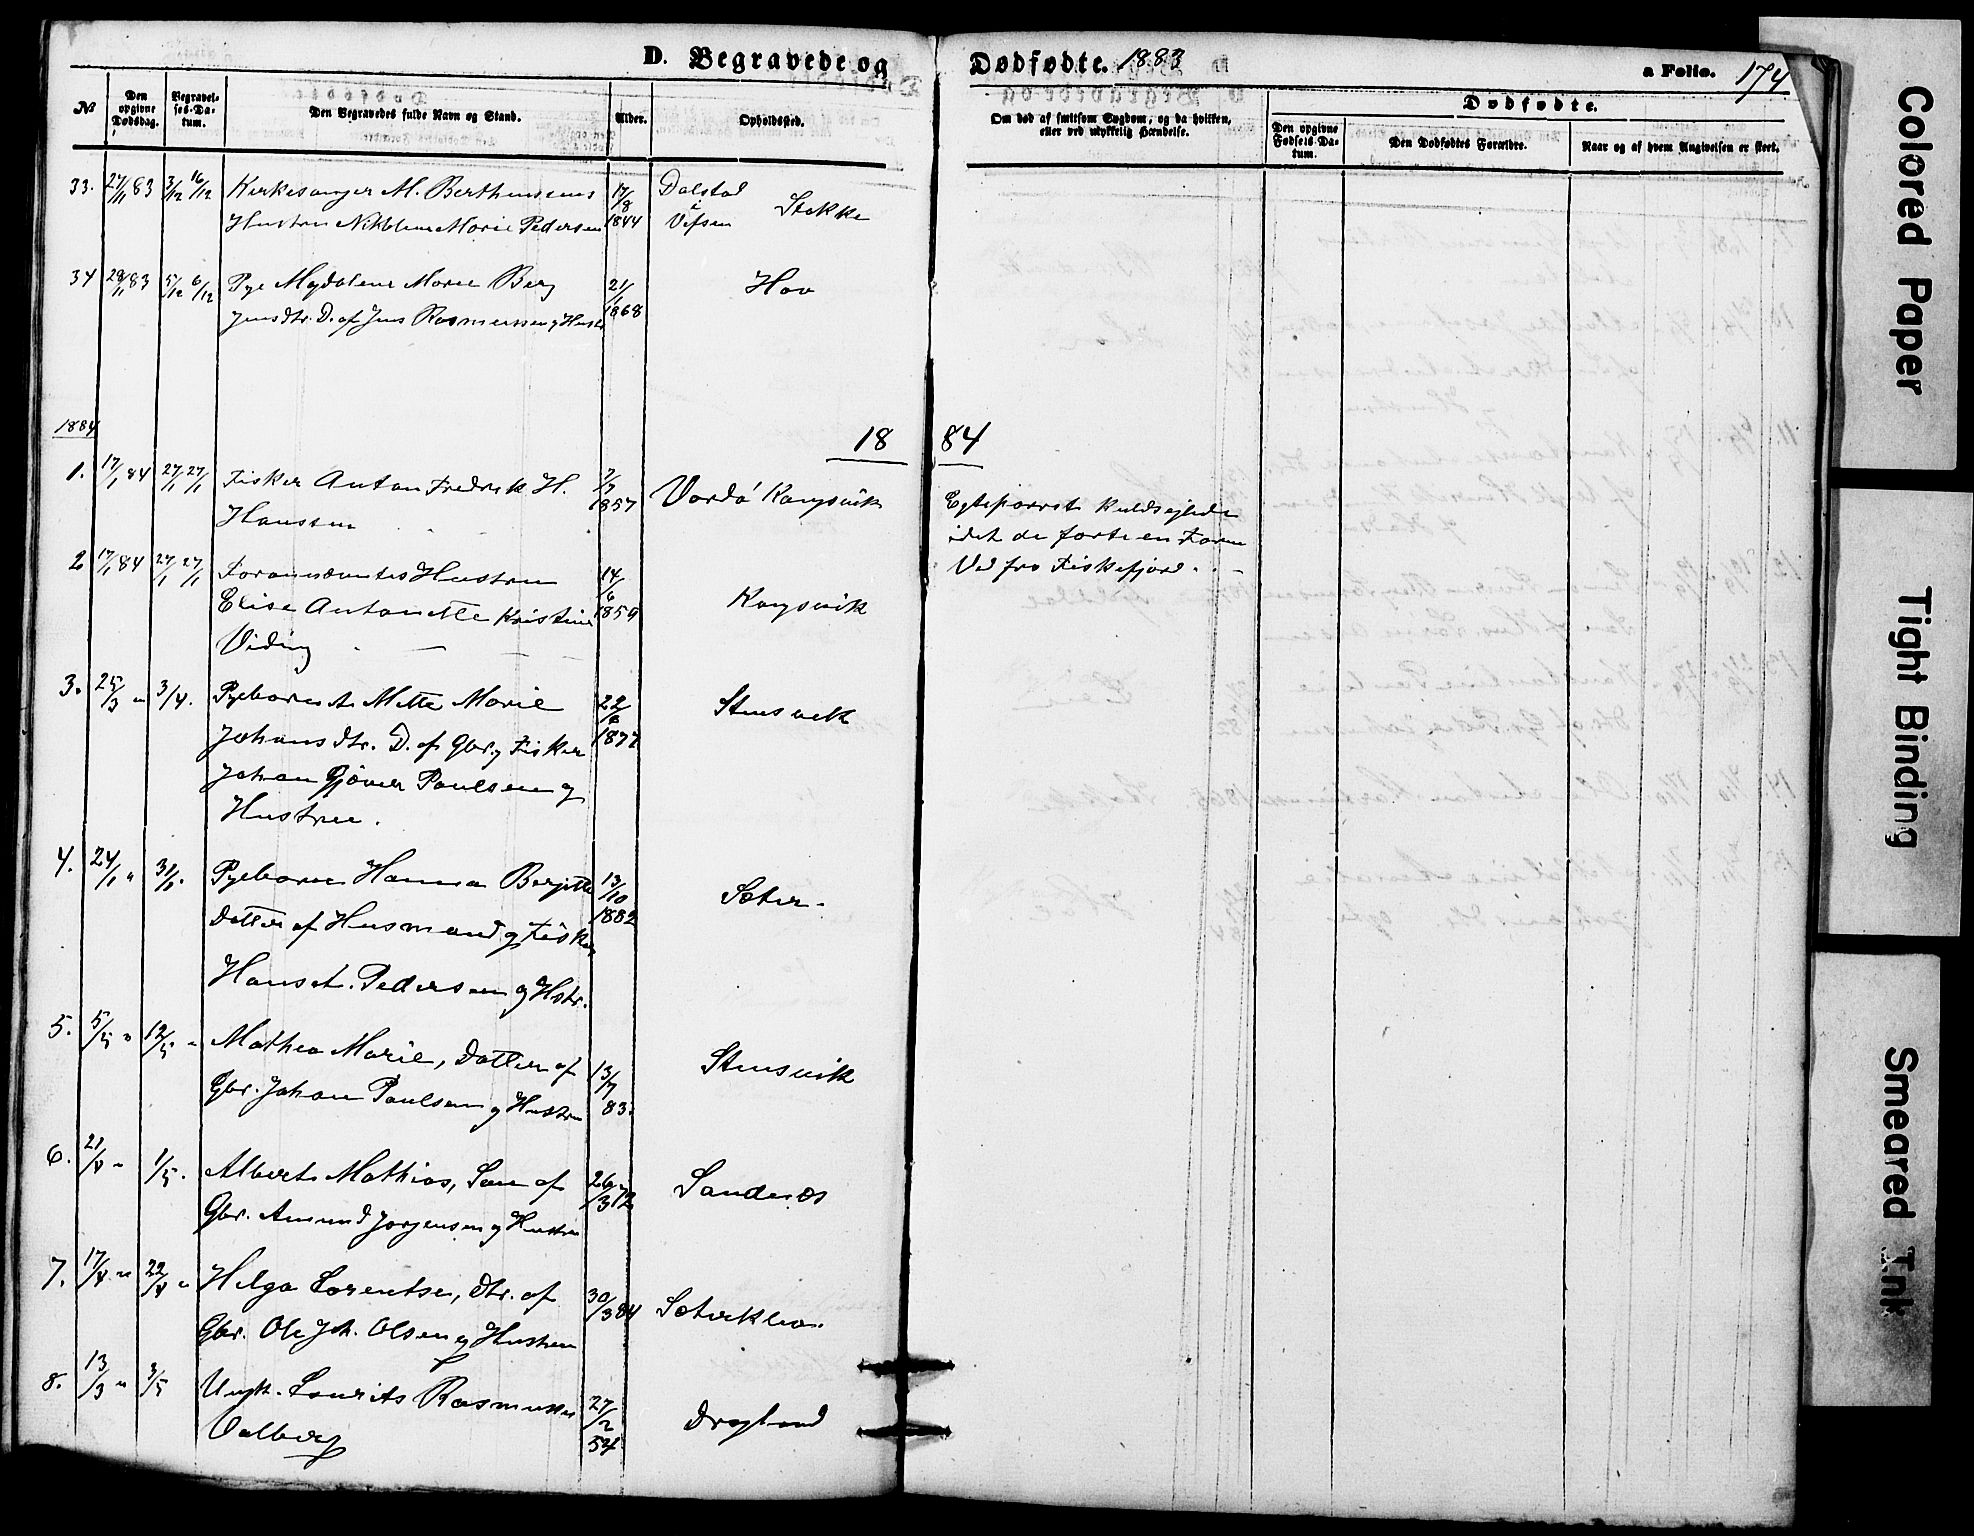 D. Begravede og Dødfødte. 1883
a Folio. 174
№
Den opgivne Dødsdag.
Begravelses-Datum.
Den Begravedes fulde Navn og Stand.
Alder.
Opholdssted.
Om død af smitsom Sygdom, og da hvilken, eller ved ulykkelig Hændelse.
Dødfødte.
Den opgivne Fødsels-Datum.
Den Dødfødtes Forældre.
Naar og af hvem Angivelsen er skeet.
33. 27/11 83 3/12 16/12 Kirkesanger M. Berthensens 17/8 Dolstad Stokke
Hustru Nikoline Marie Pedersen 1844 i Vefsen
34 29/11 83 5/12 6/12 Pge Magdalene Marie Berg 21/1 Hov
Jensdtr. D. af Jens Rasmussen og Hustr 1868
1884
18 84
1. 17/1 84 27/1 27/1 Fisker Anton Fredrik H. 7/7 Vardø Kongsvik
Hanssen 1857
Egteparret kuldseilede
idet de førte en Favn
Ved fra Fiskefjord.
2 17/1 84 27/1 27/1 Forannævntes Hustru 14/6 Kongsvik
Elise Antonette Kristine 1859
Viding
3. 25/3 " 3/4. Pgebarnet Mette Marie 22/6 Stensvik
Johansdtr. D. af Gbr. og Fisker 1877
Johan Gjøver Paulsen og
Hustru.
4. 24/1 " 31/1. Pgebarn Hanna Bergitte 13/10 Sæter.
Datter af Husmand og Fisker 1882
Hans A. Pedersen og Hstr.
5. 5/5 " 12/5 " Mathea Marie, Datter af 13/7 Stensvik
Gbr. Johan Paulsen og Hustru 83.
6. 21/4 " 1/5. Albert Mathias, Søn af 26/3 72 Sandnæs
Gbr. Amund Jørgensen og Hustru
7. 17/4 " 22/4 " Helga Lorentse, dtr. af 30/3 84 Sæterklien.
Gbr. Ole Joh. Olsen og Hustru
8. 13/3 " 3/5 Ungk. Laurits Rasmussen 27/2 Dragland
Valberg 54
Colored Paper
Tight Binding
Smeared Ink